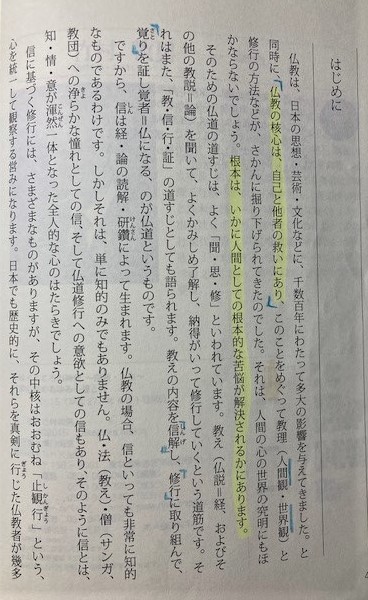 はじめに
仏教は、日本の思想・芸術・文化などに、千数百年にわたって多大の影響を与えてきました。と
同時に、「仏教の核心は、自己と他者の救いにあり、このことをめぐって教理（人間観・世界観）と
修行の方法などが、さかんに掘り下げられてきたのでした。それは、人間の心の世界の究明にもほ
かならないでしょう。根本は、いかに人間としての根本的な苦悩が解決されるかにあります。
そのための仏道の道すじは、よく「聞・思・修」といわれています。教え（仏説＝経、およびそ
の他の教説＝論）を聞いて、よくかみしめ了解し、納得がいって修行していくという道筋です。そ
れはまた、「教・信・行・証」の道すじとしても語られます。教えの内容を信解し、修行に取り組んで、
覚りを証し覚者＝仏になる、のが仏道というものです。
ですから、信は経・論の読解・研鑽によって生まれます。仏教の場合、信といっても非常に知的
なものであるわけです。しかしそれは、単に知的のみでもありません。仏・法（教え）・僧（サンガ、
教団）への浄らかな憧れとしての信、そして仏道修行への意欲としての信もあり、そのように信とは、
知・情・意が渾然一体となった全人的な心のはたらきでしょう。
信に基づく修行には、さまざまなものがありますが、その中核はおおむね「止観行」という、
心を統一して観察する営みになります。日本でも歴史的に、それらを真剣に行じた仏教者が幾多